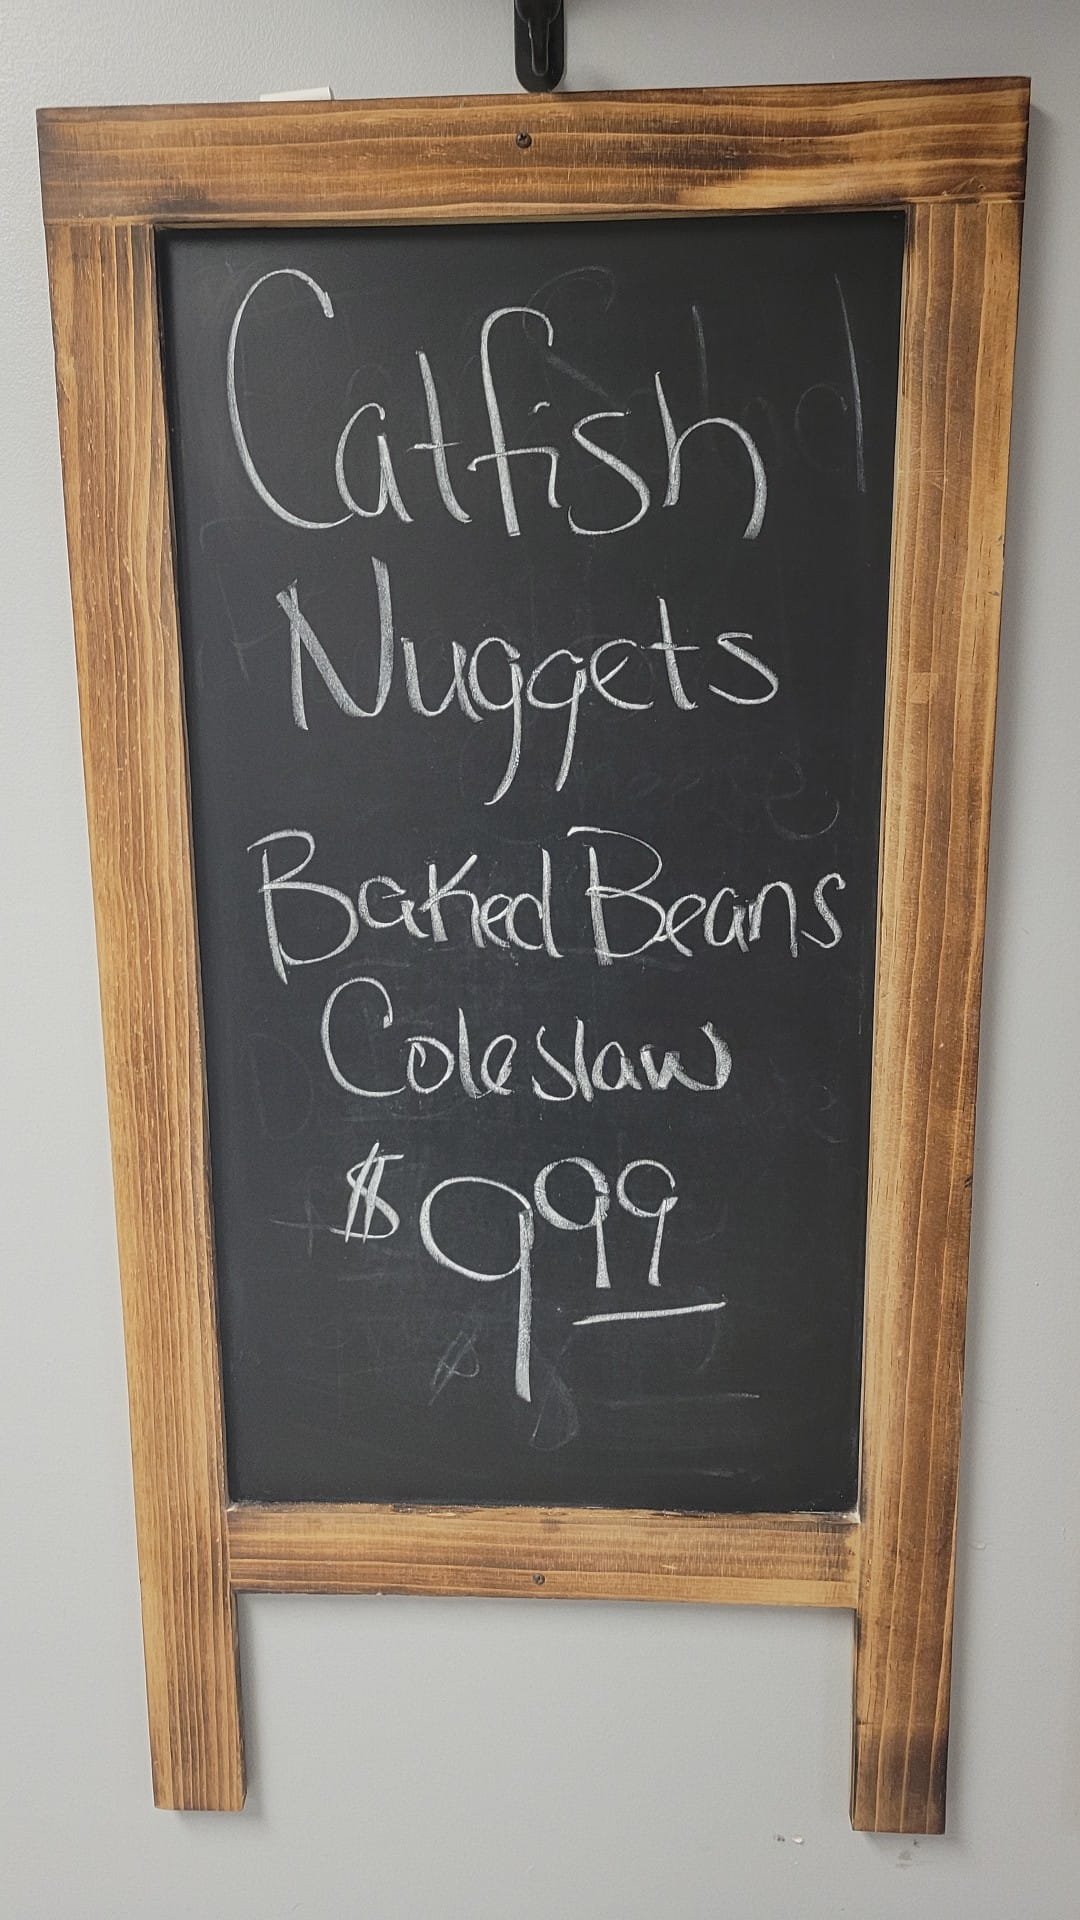 Catfish
Nuggets
Baked Beans
Coleslaw
$9.99